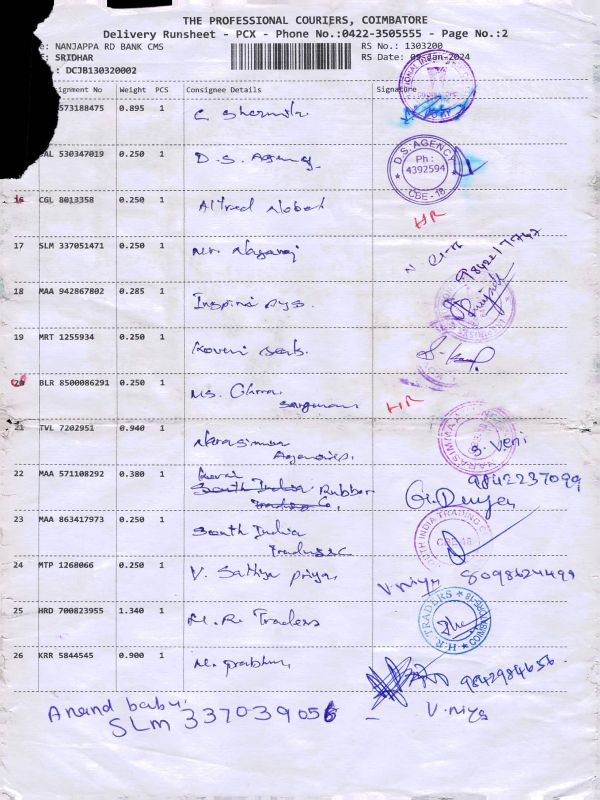 THE PROFESSIONAL COURIERS, COIMBATORE
Delivery Runsheet - PCX - Phone No.:0422-3505555 - Page No.:2
: NANJAPPA RD BANK CMS RS No.: 1303200
: SRIDHAR RS Date: -Jan-2024
: DCJB130320002
No Weight PCS Consignee Details Signature
573188475 0.895 1 C
530347019 0.250 1 D.S. Agency
D.S. AGENCY Ph: 4392594 CBE - 18
16 CGL 8013358 0.250 1 Alfred HR
17 SLM 337051471 0.250 1 Mr. Nagaraj
18 MAA 942867802 0.285 1 Sys.
19 MRT 1255934 0.250 1
20 BLR 8500086291 0.250 1 Ms. HR
21 TVL 7202951 0.940 1 Narasimma Agencies. S. Veni
22 MAA 571108292 0.380 1 Kovai South India Rubber Trading Co, 9842237099
23 MAA 863417973 0.250 1 South India
SOUTH INDIA TRADING CBE-18
24 MTP 1268066 0.250 1 V. Sathya Priya V.niya 8098624499
25 HRD 700823955 1.340 1 M.R. Traders
TRADERS
26 KRR 5844545 0.900 1 M. Prabhu, 9842984656
Anand babu, V.niya
SLM 337039056